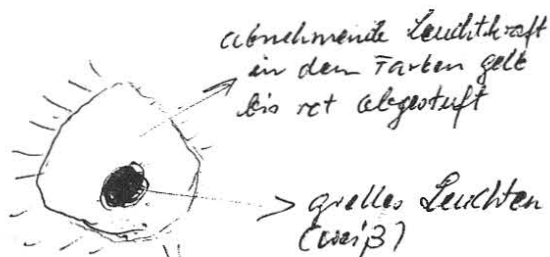 abnehmende Leuchtkraft
in den Farben gelb
bis rot abgestuft
grelles Leuchten
(weiß)